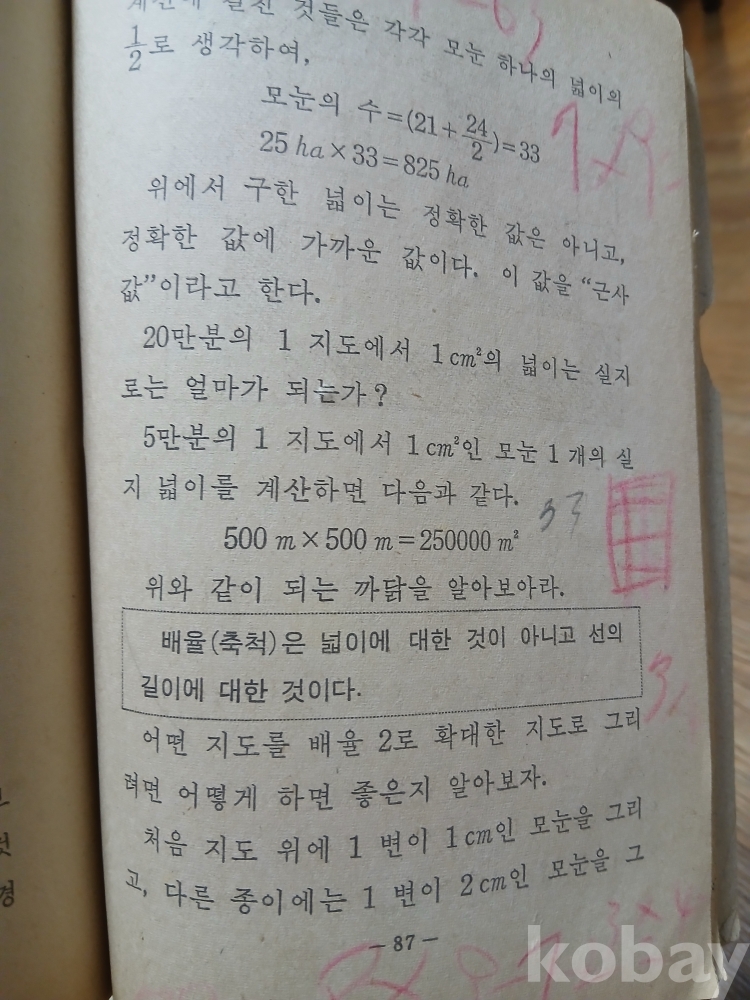 것들은 각각 모눈 하나의 넓이의
1/2로 생각하여,
모눈의 수=(21+24/2)=33
25 ha×33=825 ha
위에서 구한 넓이는 정확한 값은 아니고,
정확한 값에 가까운 값이다. 이 값을 “근사
값”이라고 한다.
20만분의 1 지도에서 1cm²의 넓이는 실지
로는 얼마가 되는가?
5만분의 1 지도에서 1cm²인 모눈 1개의 실
지 넓이를 계산하면 다음과 같다.
500 m×500 m=250000 m²
33
위와 같이 되는 까닭을 알아보아라.
배율(축척)은 넓이에 대한 것이 아니고 선의
길이에 대한 것이다.
어떤 지도를 배율 2로 확대한 지도로 그리
려면 어떻게 하면 좋은지 알아보자.
처음 지도 위에 1 변이 1cm인 모눈을 그리
고, 다른 종이에는 1 변이 2cm인 모눈을 그
3×4
－87－
kobay